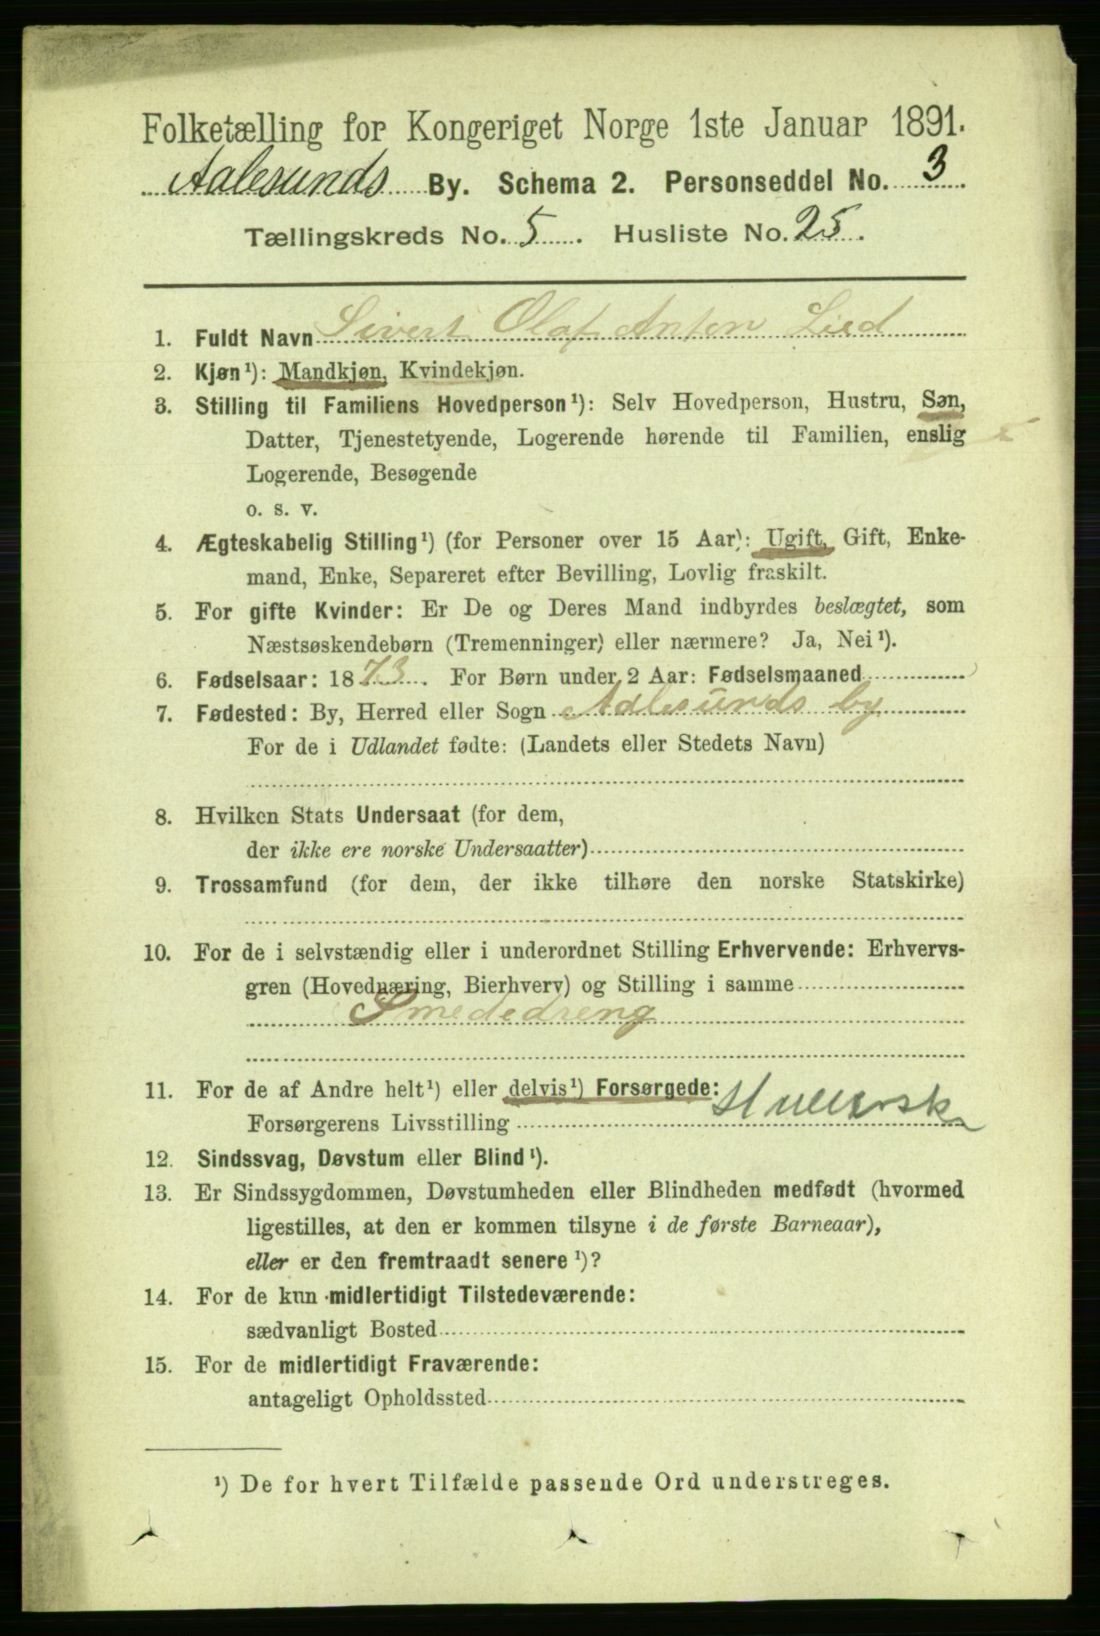 Folketælling for Kongeriget Norge 1ste Januar 1891.
Aalesunds By. Schema 2. Personseddel No. 3.
Tællingskreds No. 5. Husliste No. 25.
1. Fuldt Navn Sivert Olaf Anton Lied
2. Kjøn¹): Mandkjøn, Kvindekjøn.
3. Stilling til Familiens Hovedperson¹): Selv Hovedperson, Hustru, Søn,
Datter, Tjenestetyende, Logerende hørende til Familien, enslig
Logerende, Besøgende
o. s. v.
4. Ægteskabelig Stilling¹) (for Personer over 15 Aar): Ugift, Gift, Enke-
mand, Enke, Separeret efter Bevilling, Lovlig fraskilt.
5. For gifte Kvinder: Er De og Deres Mand indbyrdes beslægtet, som
Næstsøskendebørn (Tremenninger) eller nærmere? Ja, Nei¹).
6. Fødselsaar: 1873. For Børn under 2 Aar: Fødselsmaaned
7. Fødested: By, Herred eller Sogn Aalesunds by
For de i Udlandet fødte: (Landets eller Stedets Navn)
8. Hvilken Stats Undersaat (for dem,
der ikke ere norske Undersaatter)
9. Trossamfund (for dem, der ikke tilhøre den norske Statskirke)
10. For de i selvstændig eller i underordnet Stilling Erhvervende: Erhvervs-
gren (Hovednæring, Bierhverv) og Stilling i samme
Smededreng
11. For de af Andre helt¹) eller delvis¹) Forsørgede:
Forsørgerens Livsstilling
12. Sindssvag, Døvstum eller Blind¹).
13. Er Sindssygdommen, Døvstumheden eller Blindheden medfødt (hvormed
ligestilles, at den er kommen tilsyne i de første Barneaar),
eller er den fremtraadt senere¹)?
14. For de kun midlertidigt Tilstedeværende:
sædvanligt Bosted
15. For de midlertidigt Fraværende:
antageligt Opholdssted
¹) De for hvert Tilfælde passende Ord understreges.